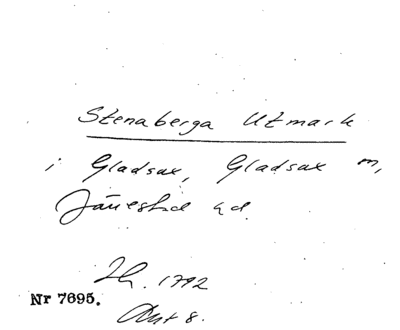 Stenaberga Utmark
i Gladsax, Gladsax m,
Järrestad hd.
Lh. 1792
Nr 7695.
Akt 8.